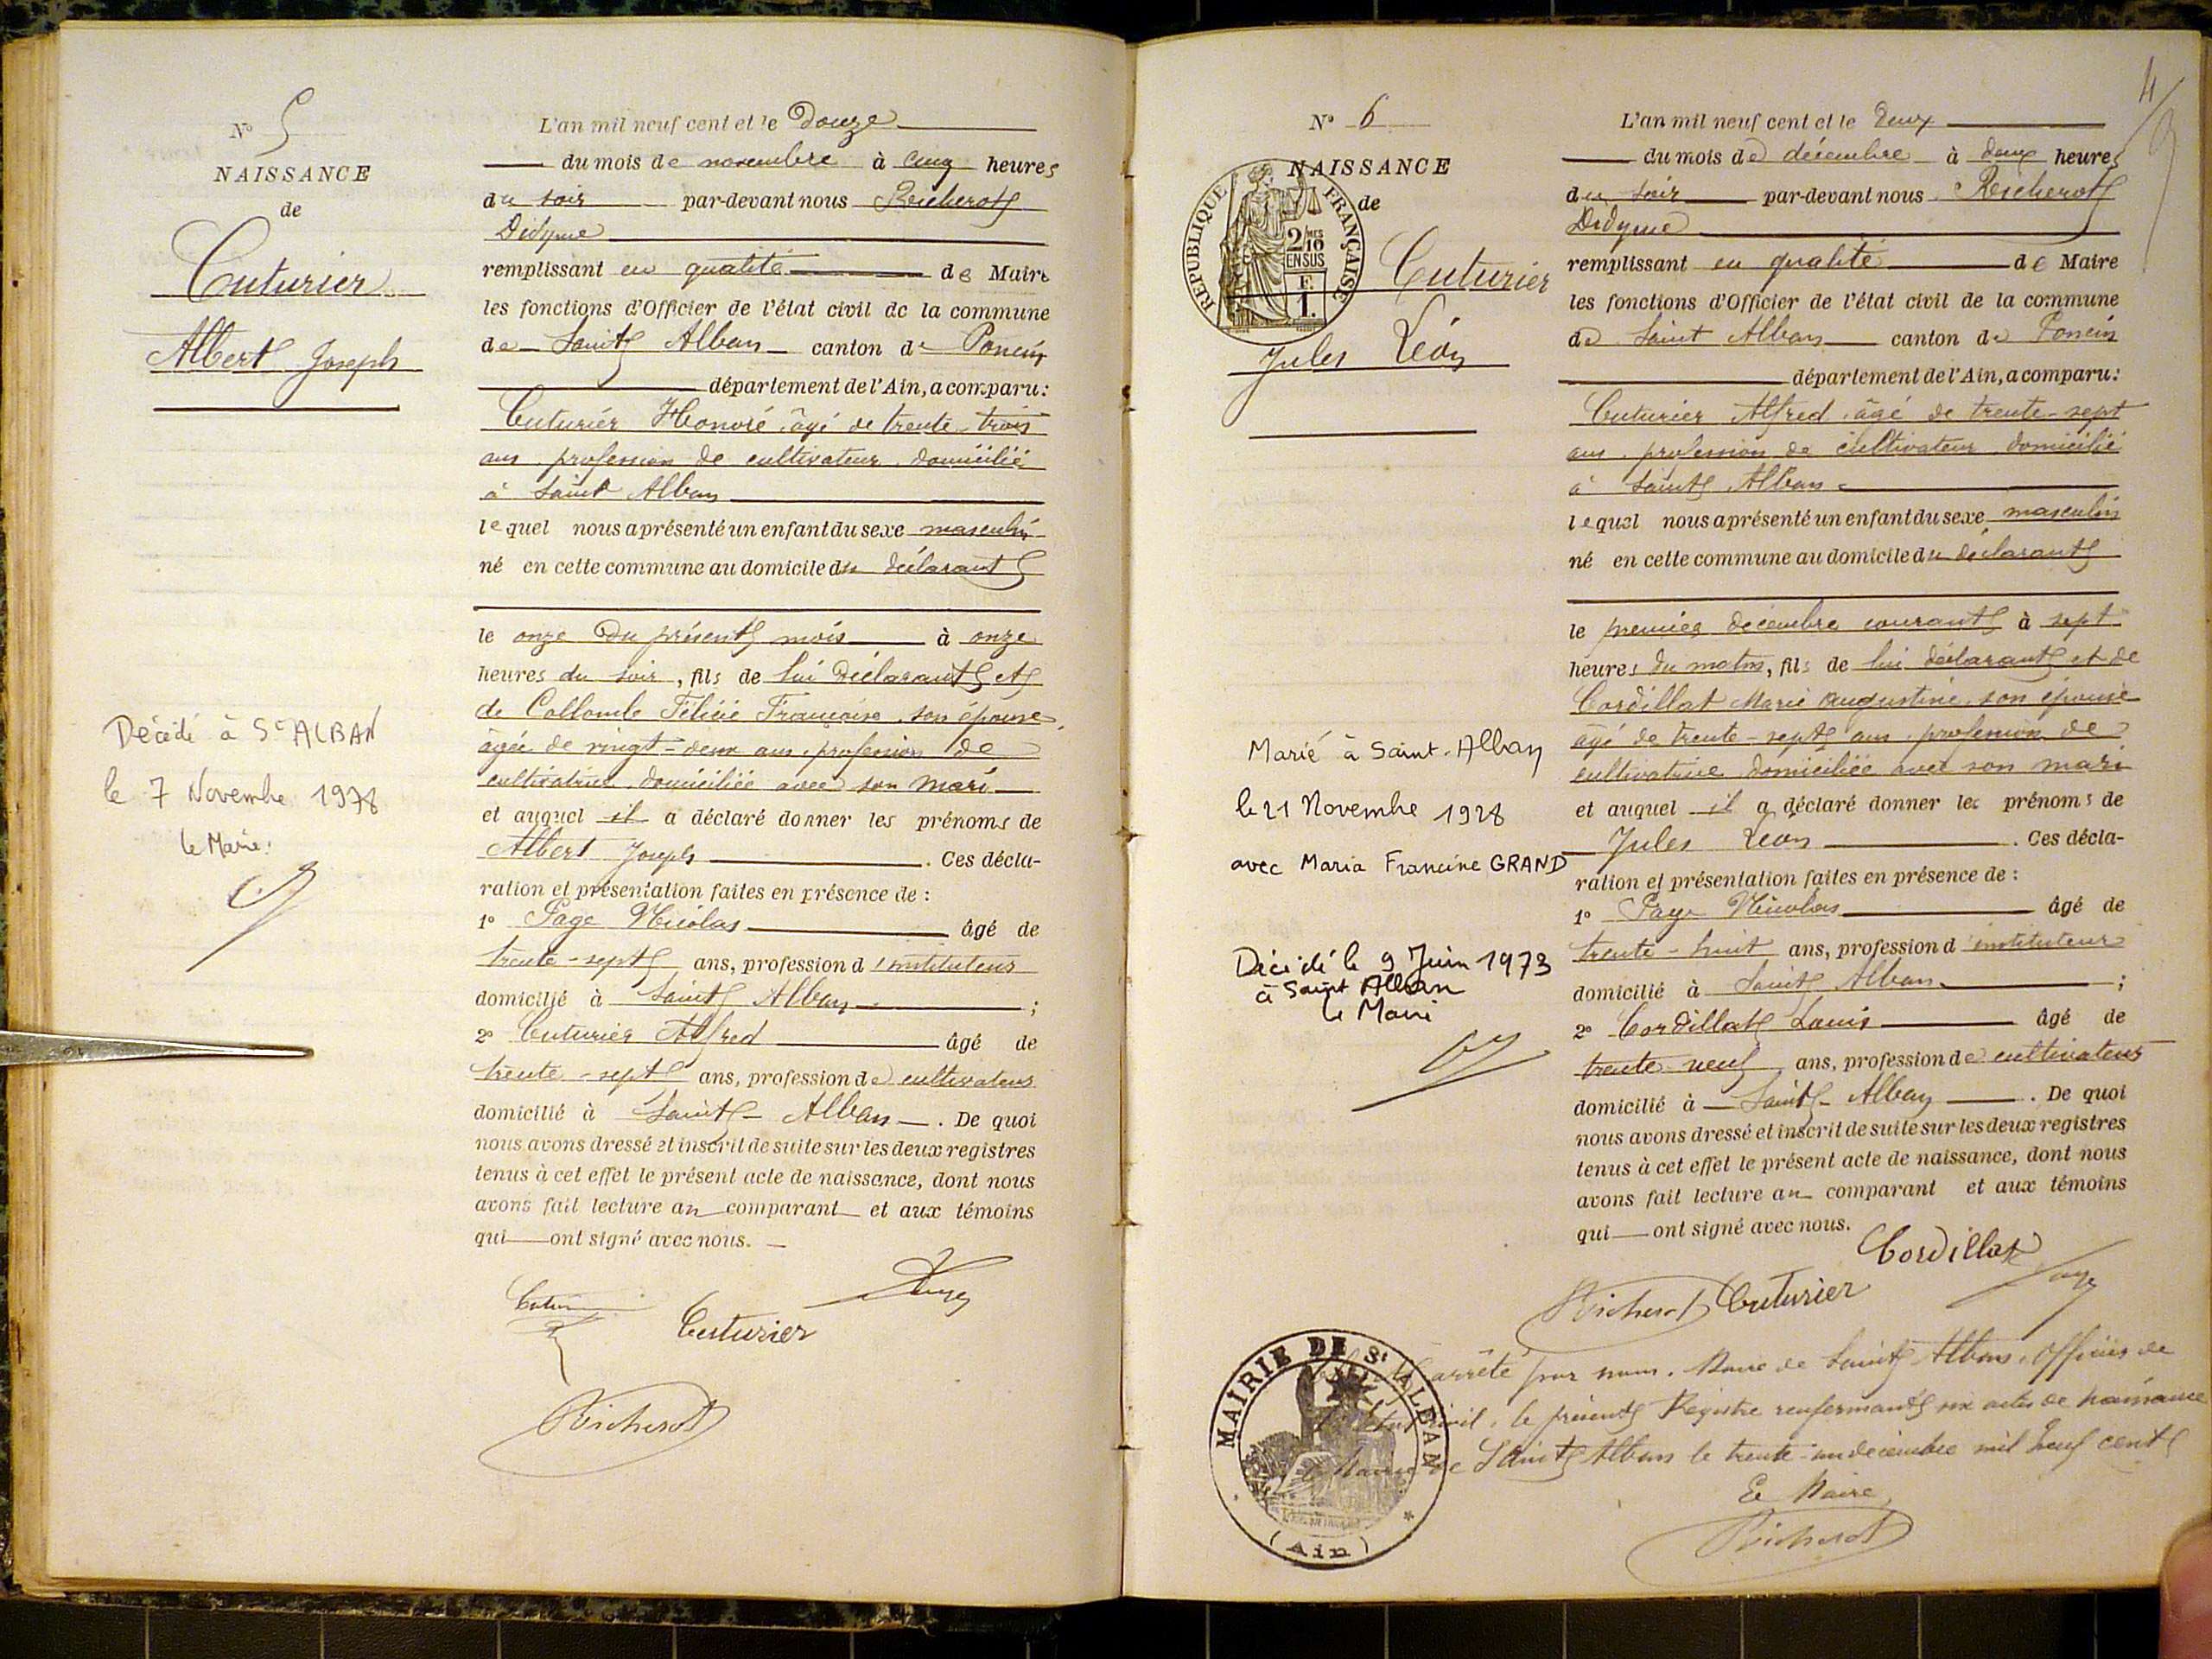 N° 5
NAISSANCE
de
Cuturier
Albert Joseph
Décédé à St ALBAN
le 7 Novembre 1978
le Maire:
L'an mil neuf cent et le Douze
du mois de novembre à cinq heures
du soir par-devant nous Richerot
Didyme
remplissant en qualité de Maire
les fonctions d'Officier de l'état civil de la commune
de Saint Alban canton de Poncin
département de l'Ain, a comparu:
Cuturier Honoré, âgé de trente-trois
ans, profession de cultivateur, domicilié
à Saint Alban
lequel nous a présenté un enfant du sexe masculin
né en cette commune au domicile du déclarant
le onze du présent mois à onze
heures du soir, fils de lui déclarant et
de Collomb Félicie Françoise, son épouse,
âgée de vingt-deux ans, profession de
cultivatrice, domiciliée avec son mari
et auquel il a déclaré donner les prénoms de
Albert Joseph. Ces décla-
ration et présentation faites en présence de:
1° Page Nicolas âgé de
trente-sept ans, profession d'instituteur
domicilié à Saint Alban;
2° Cuturier Alfred âgé de
trente-sept ans, profession de cultivateur
domicilié à Saint-Alban. De quoi
nous avons dressé et inscrit de suite sur les deux registres
tenus à cet effet le présent acte de naissance, dont nous
avons fait lecture au comparant et aux témoins
qui ont signé avec nous.
Page
Cuturier
Richerot
4
N° 6
NAISSANCE
de
RÉPUBLIQUE FRANÇAISE
2/10 MES
EN SUS
F.
1.
Cuturier
Jules Léon
Marié à Saint-Alban
le 21 Novembre 1928
avec Maria Francine GRAND
Décédé le 9 Juin 1973
à Saint Alban
le Maire
L'an mil neuf cent et le deux
du mois de décembre à deux heures
du soir par-devant nous Richerot
Didyme
remplissant en qualité de Maire
les fonctions d'Officier de l'état civil de la commune
de Saint Alban canton de Poncin
département de l'Ain, a comparu:
Cuturier Alfred, âgé de trente-sept
ans, profession de cultivateur, domicilié
à Saint Alban
lequel nous a présenté un enfant du sexe masculin
né en cette commune au domicile du déclarant
le premier décembre courant à sept
heures du matin, fils de lui déclarant et de
Cordillat Marie Augustine, son épouse
âgé de trente-sept ans, profession de
cultivatrice domiciliée avec son mari
et auquel il a déclaré donner les prénoms de
Jules Léon. Ces décla-
ration et présentation faites en présence de:
1° Page Nicolas âgé de
trente-huit ans, profession d'instituteur
domicilié à Saint Alban;
2° Cordillat Louis âgé de
trente-neuf ans, profession de cultivateur
domicilié à Saint-Alban. De quoi
nous avons dressé et inscrit de suite sur les deux registres
tenus à cet effet le présent acte de naissance, dont nous
avons fait lecture au comparant et aux témoins
qui ont signé avec nous.
Cordillat
Richerot Cuturier Page
arrêté par nous, Maire de Saint Alban, Officier de
l'Etat civil, le présent Registre renfermant six actes de naissance
Mairie de Saint Alban le trente-un décembre mil neuf cent
Le Maire,
Richerot
MAIRIE DE St ALBAN
(Ain)